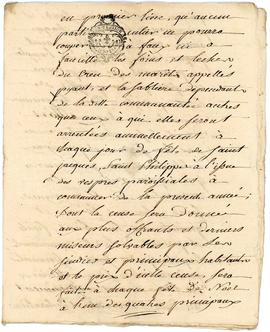 en premier lieu, qu'aucun
particulier ne pourra
couper à faux ni à
faucille les foins et leches
du creu des marais appellés
et la sablière dependant
de la dite communauté autres
que ceux à qui elles seront
annuellement à
chaque jour de fête de saint
jacques, saint Philippe à l'issue
des vespres paroissiales à
commancer de la presente année;
dont la cense sera donnée
aux plus offrants et derniers
miseurs solvables par les
sindics et principaux habitants
et le prix d'icelle cense, sera
à chaque fête de Noel
principaux